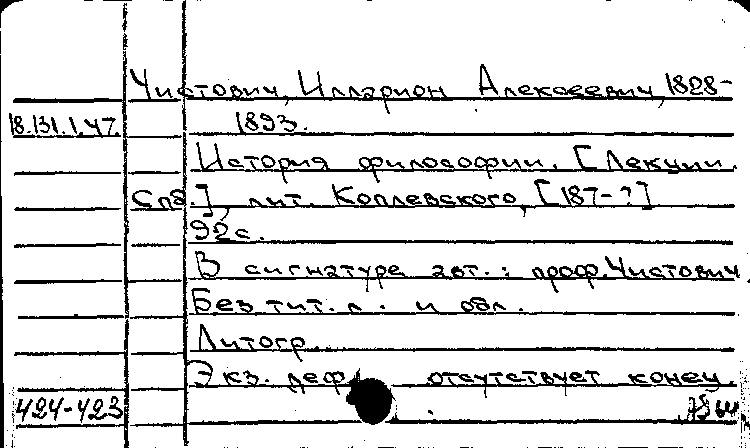 Чистович, Илларион Алексеевич, 1828-
18.131.1.47. 1893.
История философии. [Лекции.
Спб.], лит. Коплевского, [187-?]
92с.
В сигнатуре авт.: проф. Чистович
Без тит. л. и обл.
Литогр.
Экз. деф. отсутствует конец.
424-423